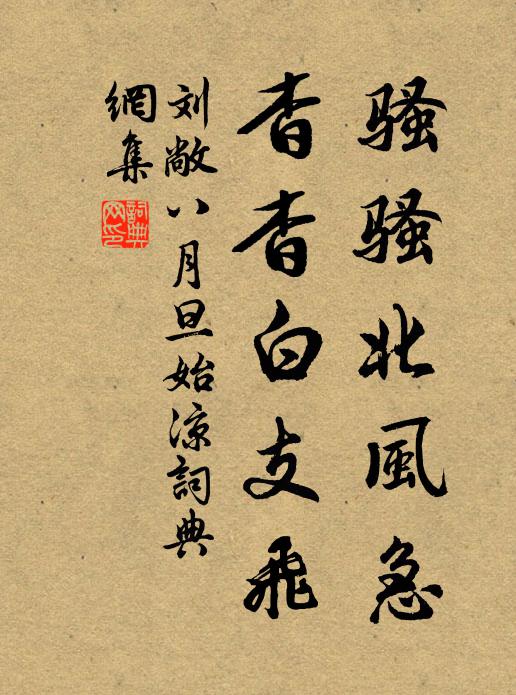 骚骚北風急
杳杳白支飛
刘敞八月旦始凉詞典
網集
詞典網印